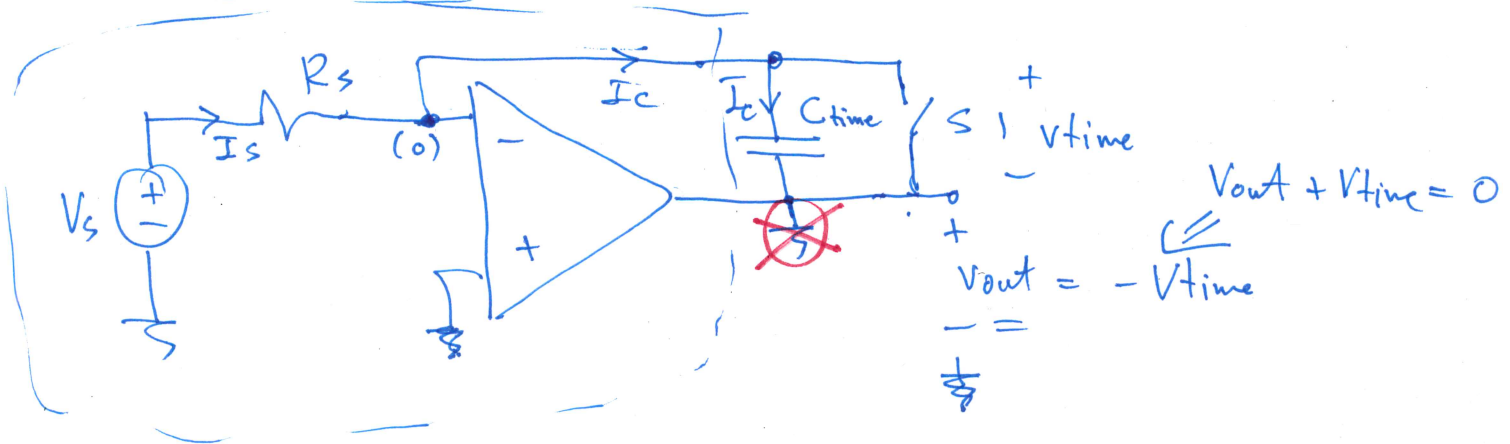 Rs
Is
Vs
+
-
(0)
-
+
Ic
Ic
Ctime
S1
+
Vtime
-
Vout + Vtime = 0
+
Vout = - Vtime
- =